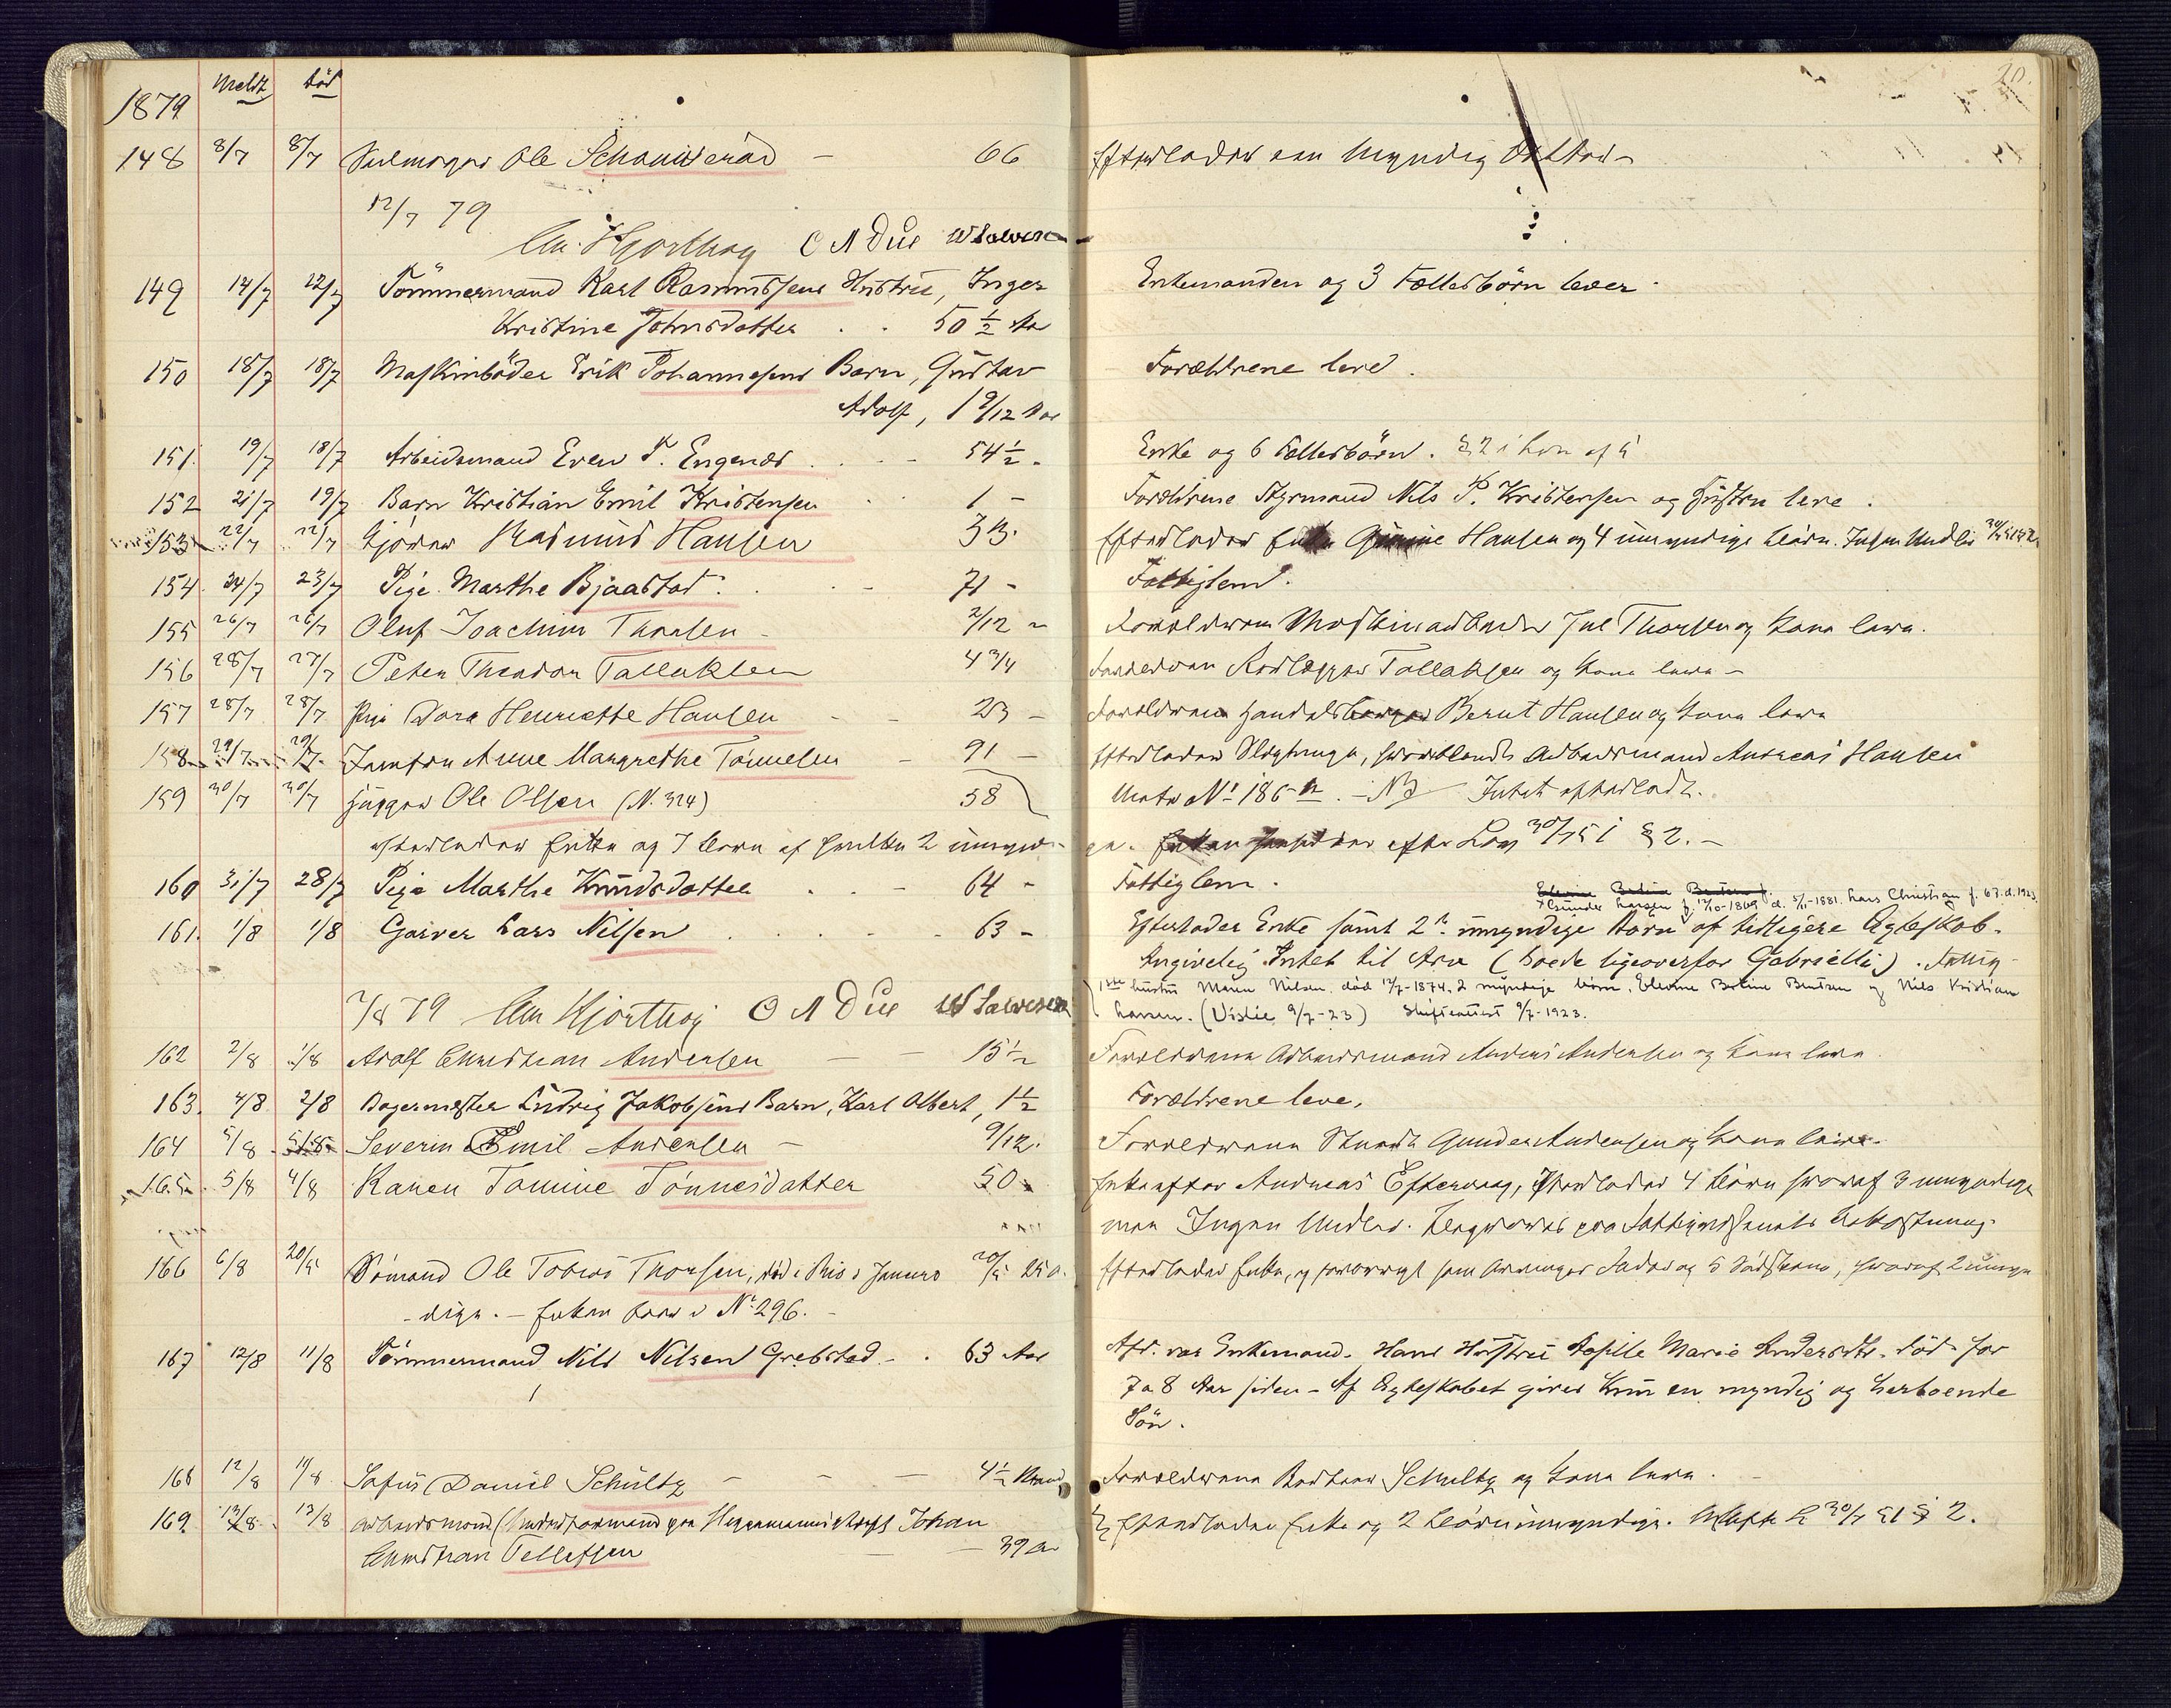 20.
1879 Meldt Død
148 8/7 8/7 Seilmager Ole Schouwerød – 66 Efterlader en Myndig Datter –
12/7 79
Chr. Hjorthøy O A Due W Salvesen
149 14/7 12/7 Tömmermand Karl Rasmussens Hustru, Inger Enkemanden og 3 Fællesbörn lever.
Kristine Johnsdatter . . 50 1/2 Aar
150 18/7 18/7 Maskinböder Erik Johannesens Barn, Gustav Forældrene leve.
Adolf, 1 9/12 Aar
151. 19/7 18/7 Arbeidsmand Even P. Engenæs . . – 54 1/2 – Enke og 6 Fællesbörn. § 2 i Lov af
152 21/7 19/7 Barn Kristian Emil Kristensen . 1 – Forældrene Styrmand Nils P. Kristensen og Hustru leve.
153 22/7 22/7 Gjörtler Rasmus Hansen 33. Efterlader Enke Gurine Hansen og 4 umyndige Börn. Ingen Midler
154. 24/7 23/7 Pige Marthe Bjaastad . . – 71 – Fattiglem.
155 26/7 26/7 Oluf Joachim Thorsen – 2/12 – Forældrene Maskinarbeider Jul Thorsen og Kone leve.
156 28/7 27/7 Peter Theodor Tallaksen 4 3/4 Forældrene Tallaksen og Kone leve –
157 28/7 28/7 Pige Dora Henriette Hansen – – 23 – Forældrene Handelsborger Bernt Hansen og Kone leve
158 29/7 29/7 Jomfru Anne Margrethe Tönnesen – 91 – Efterlader Slægtninge, hvoriblandt Arbeidsmand Andreas Hansen
159 30/7 30/7 Ole Olsen (N. 324) 58 Matr No 186 a. – NB Intet efterladt.
efterlader Enke og 7 Börn af hvilke 2 umyndi-
ge. Enken sidder efter Lov 30/7 51 § 2. –
160 31/7 28/7 Pige Marthe Knudsdatter . . – 64 – Fattiglem.
Elevine Bertine Bentsen f.
Gunder Larsen f. 12/10-1869 d. 5/11-1881. Lars Christian f. 67. d. 1923.
161. 1/8 1/8 Garver Lars Nilsen . . . . – 63 – Efterlader Enke samt 2 umyndige Börn af tidligere Ægteskab.
Angivelig Intet til Arv (boede ligeoverfor Gabrielli). Fattig-
1ste hustru Maren Nilsen. død 12/7-1874. 2 myndige börn. Elevine Bertine Bentsen og Nils Kristian
Larsen. (Vislie 9/7-23) Skifteattest 9/7-1923.
7/8 79 Chr Hjorthøy O A Due W Salvesen
162 2/8 1/8 Adolf Christian Andersen – – 15 1/2 Forældrene Arbeidsmand Anders Andersen og Kone leve.
163. 4/8 2/8 Bagermester Ludvig Jakobsens Barn, Karl Albert, 1 1/2 Forældrene leve.
164 5/8 5/8 Severin Emil Andersen – 9/12. Forældrene Stuert Gunder Andersen og Kone leve.
165. 5/8 4/8 Karen Tomine Tönnesdatter 50 Enke efter Andreas Eftevaag, efterlader 4 Börn hvoraf 3 umyndige
men Ingen Midler. Begraves paa Fattigvæsenets Bekostning.
166 6/8 20/5 Sömand Ole Tobias Thorsen, död i Rio Janeiro 20/5 Efterlader Enke, og forövrigt som Arvinger Fader og 5 Sødskene, hvoraf 2 umyn
dige. – Enken boer i No 296. –
167 12/8 11/8 Tömmermand Nils Nilsen Grebstad – . 63 Aar Afd. var Enkemand. Hans Hustru Marie Andersdtr. död for
7 a 8 Aar siden – Af Ægteskabet gives kun en myndig og herboende
Sön.
168 12/8 11/8 Sofus Daniel Schultz – – – 4 1/2 Maaned Forældrene Schultz og Kone leve. –
169 13/8 13/8 Arbeidsmand (Underformand paa Johan Efterlader Enke og 2 Börn umyndige. L 30/7 51 § 2.
Christian Tellefsen – – 39 Aar